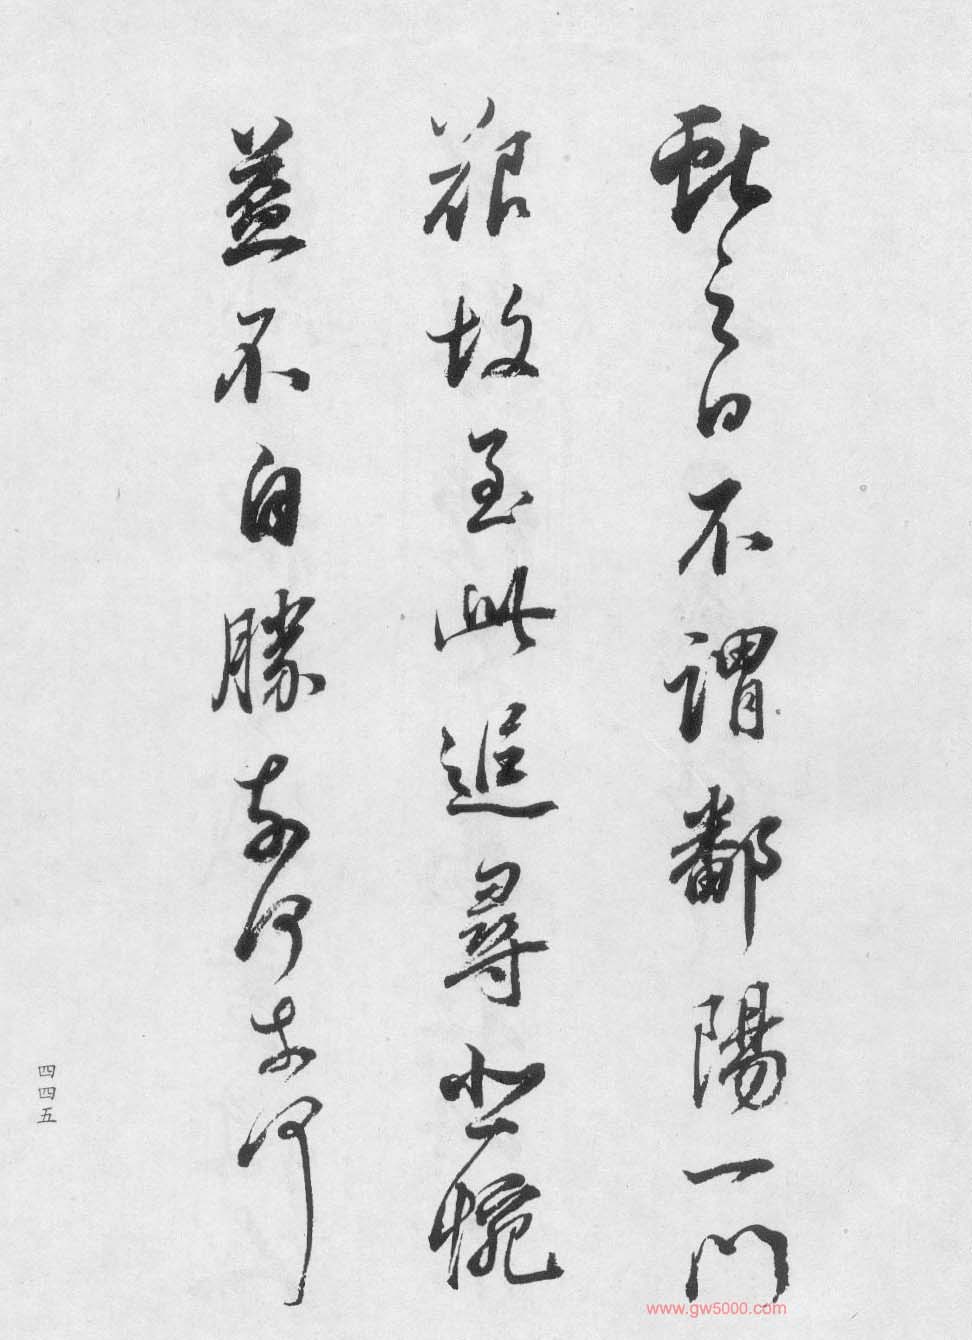 獻之白不謂鄱陽一門
艱故至此追尋悲惋
益不自勝奈何奈何
四四五
www.gw5000.com